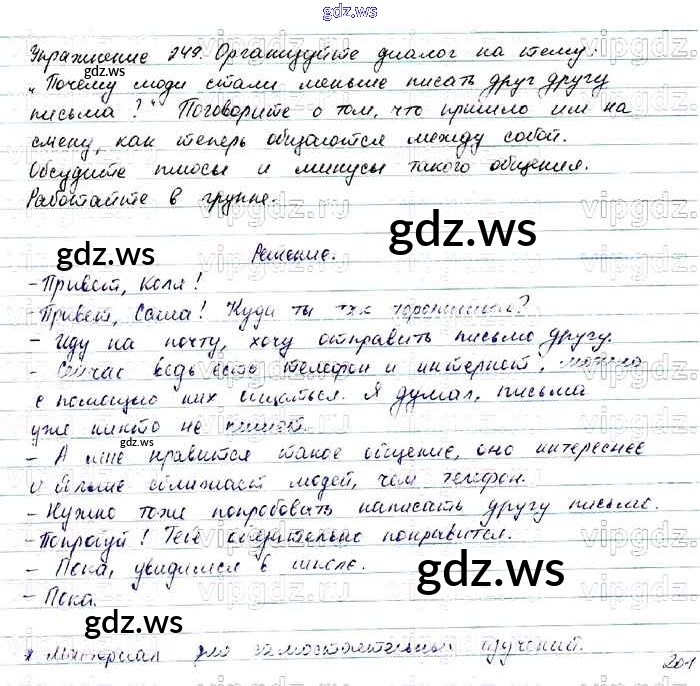 gdz.ws
Упражнение 249. Организуйте диалог на тему:
„Почему люди стали меньше писать друг другу
письма?" Поговорите о том, что пришло им на
смену, как теперь общаются между собой.
Обсудите плюсы и минусы такого общения.
Работайте в группе.
Решение.
- Привет, Коля!
- Привет, Саша! Куда ты так торопишься?
- Иду на почту, хочу отправить письмо другу.
- Сейчас ведь есть телефон и интернет, можно
с помощью них общаться. Я думал, письма
уже никто не пишет.
- А мне нравится такое общение, оно интереснее
и больше сближает людей, чем телефон.
- Нужно тоже попробовать написать другу письмо.
- Попробуй! Тебе обязательно понравится.
- Пока, увидимся в школе.
- Пока.
* Материал для самостоятельных изучений.
201
gdz.ws
gdz.ws
gdz.ws
gdz.ws
gdz.ws
gdz.ws
vipgdz.ru